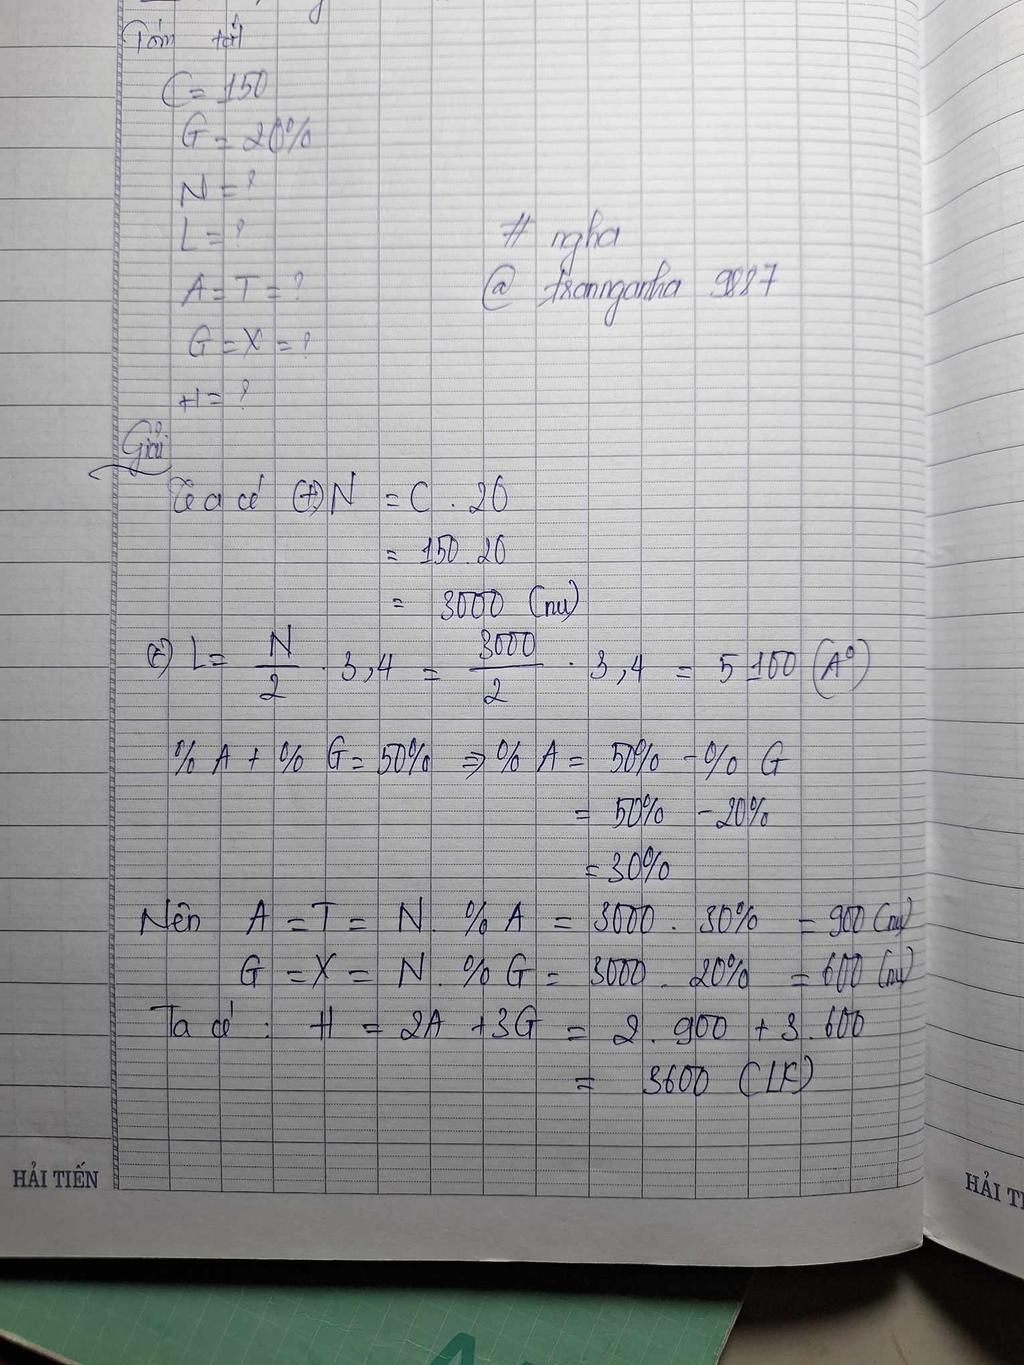 Tóm tắt
C = 150
G = 20%
N = ?
L = ?
A = T = ?
G = X = ?
H = ?
# ngha
@ trannganha 9887
Giải
Ta có (+) N = C . 20
= 150 . 20
= 3000 (nu)
(+) L = N/2 . 3,4 = 3000/2 . 3,4 = 5100 (A°)
% A + % G = 50% => % A = 50% - % G
= 50% - 20%
= 30%
Nên A = T = N . % A = 3000 . 30% = 900 (nu)
G = X = N . % G = 3000 . 20% = 600 (nu)
Ta có : H = 2A + 3G = 2 . 900 + 3 . 600
= 3600 (LK)
HẢI TIẾN
HẢI TI